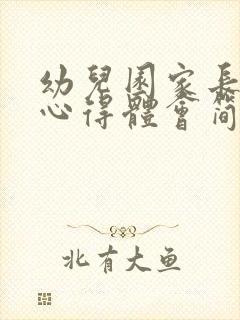 幼兒園家長
心得體會簡
北有大魚